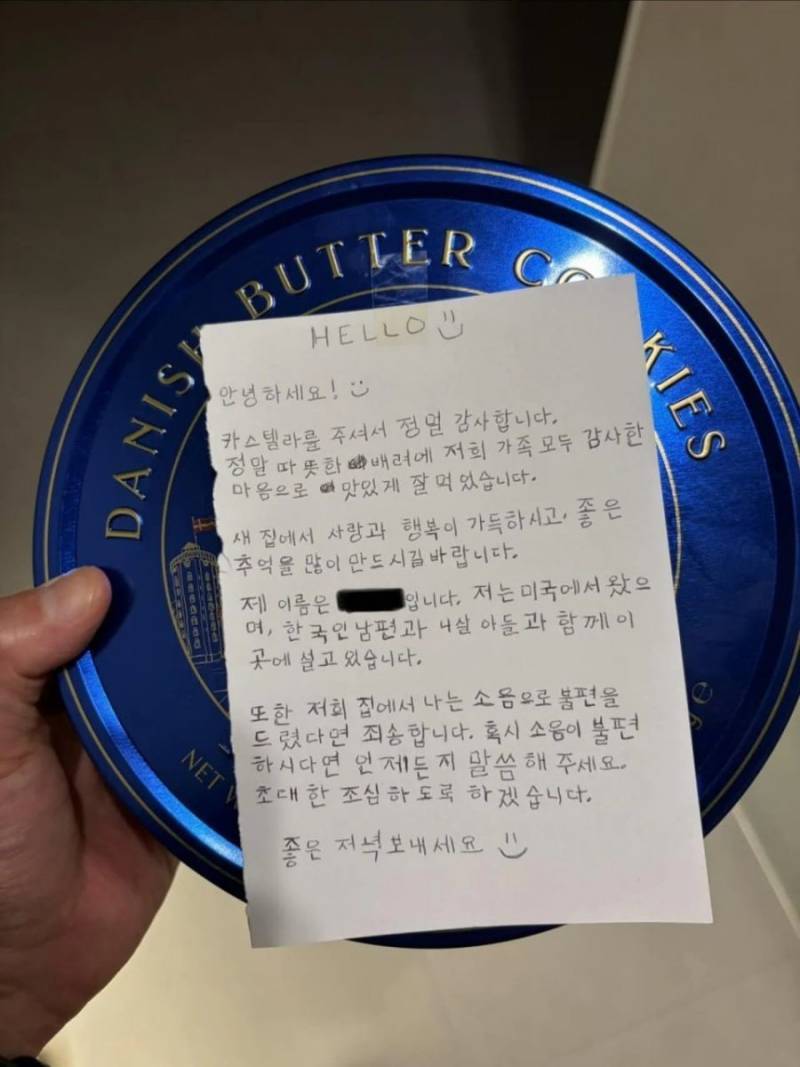 DANISH BUTTER CO KIES
HELLO
안녕하세요!
카스텔라를 주셔서 정멀 감사합니다.
정말 따뜻한 배려에 저희 가족 모두 감사한
마음으로 맛있게 잘 먹었습니다.
새 집에서 사랑과 행복이 가득하시고, 좋은
추억을 많이 만드시길 바랍니다.
제 이름은 입니다. 저는 미국에서 왔으
며, 한국인 남편과 4살 아들과 함께 이
곳에 설고 있습니다.
또한 저희 집에서 나는 소음으로 불편을
드렸다면 죄송합니다. 혹시 소음이 불편
하시다면 언제든지 말씀해 주세요.
초대한 조심하도록 하겠습니다.
좋은 저녁 보내세요
NET